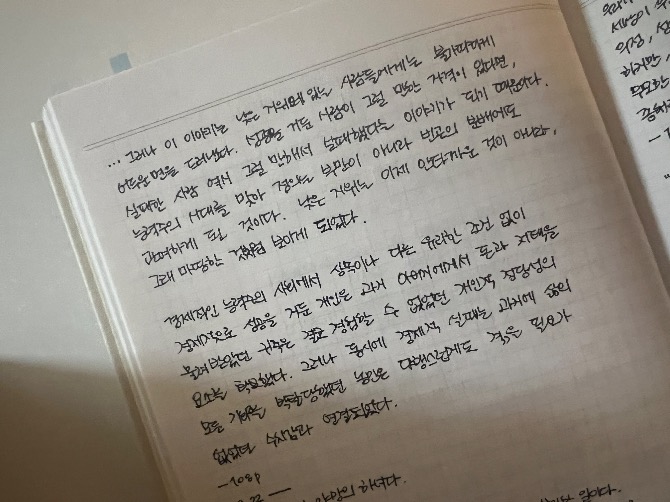 ... 그러나 이 이야기는 낮은 지위에 있는 사람들에게는 불가피하게
어두운 면을 드러냈다. 성공을 거둔 사람이 그럴 만한 자격이 있다면,
실패한 사람 역시 그럴 만해서 실패했다는 이야기가 되기 때문이다.
능력주의 시대를 맞아 정의는 부만이 아니라 빈곤의 분배에도
관여하게 된 것이다. 낮은 지위는 이제 안타까운 것이 아니라,
그래 마땅한 것처럼 보이게 되었다.
경제적인 능력주의 사회에서 상속이나 다른 유리한 조건 없이
경제적으로 성공을 거둔 개인은 과거 아버지에게서 돈과 저택을
물려받았던 귀족은 결코 경험할 수 없었던 개인적 정당성의
요소를 확보했다. 그러나 동시에 경제적 실패는 과거에 삶의
모든 기회를 박탈당했던 농민은 다행스럽게도 겪을 필요가
없었던 수치감과 연결되었다.
—108p
하녀다.
세상이
의성,
하지만,
무모한